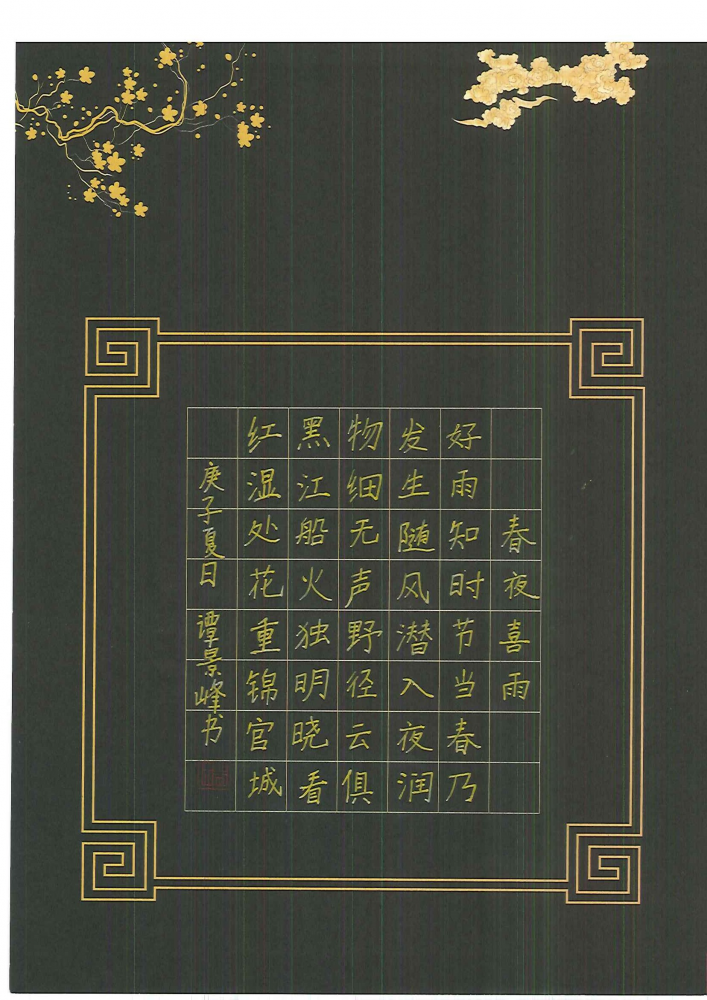 春夜喜雨
好雨知时节当春乃
发生随风潜入夜润
物细无声野径云俱
黑江船火独明晓看
红湿处花重锦官城
庚子夏日 谭景峰书